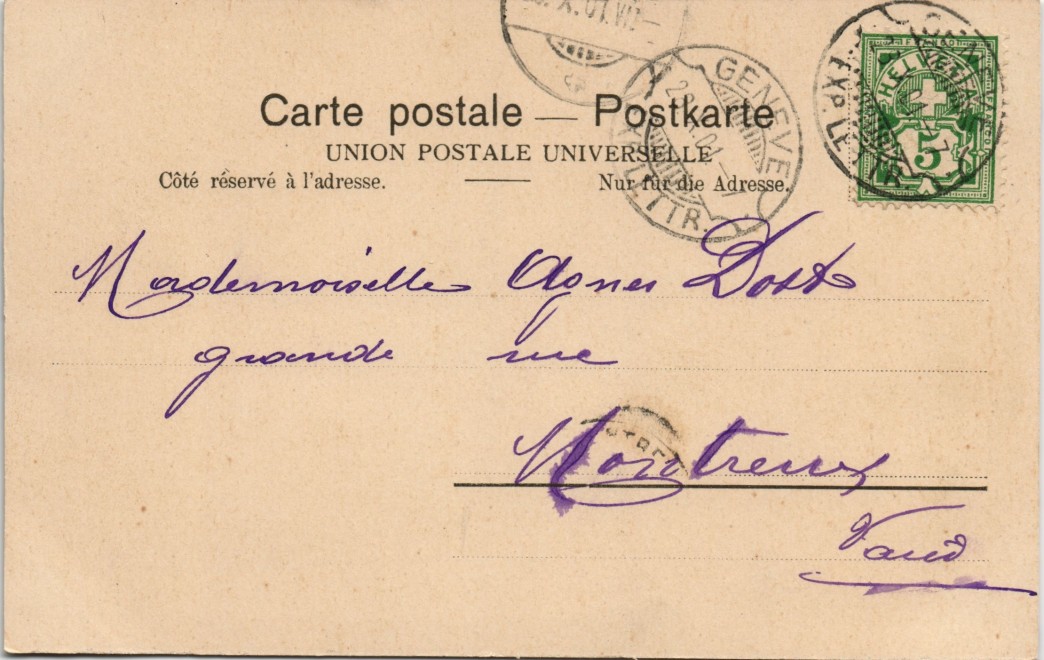 Carte postale — Postkarte
UNION POSTALE UNIVERSELLE
Côté réservé à l'adresse. Nur für die Adresse.
X.01.VII–
GENEVE
EXP. LETTR.
HELVETIA
5
Mademoiselle Agnes Dost
grande rue
Montreux
Vaud